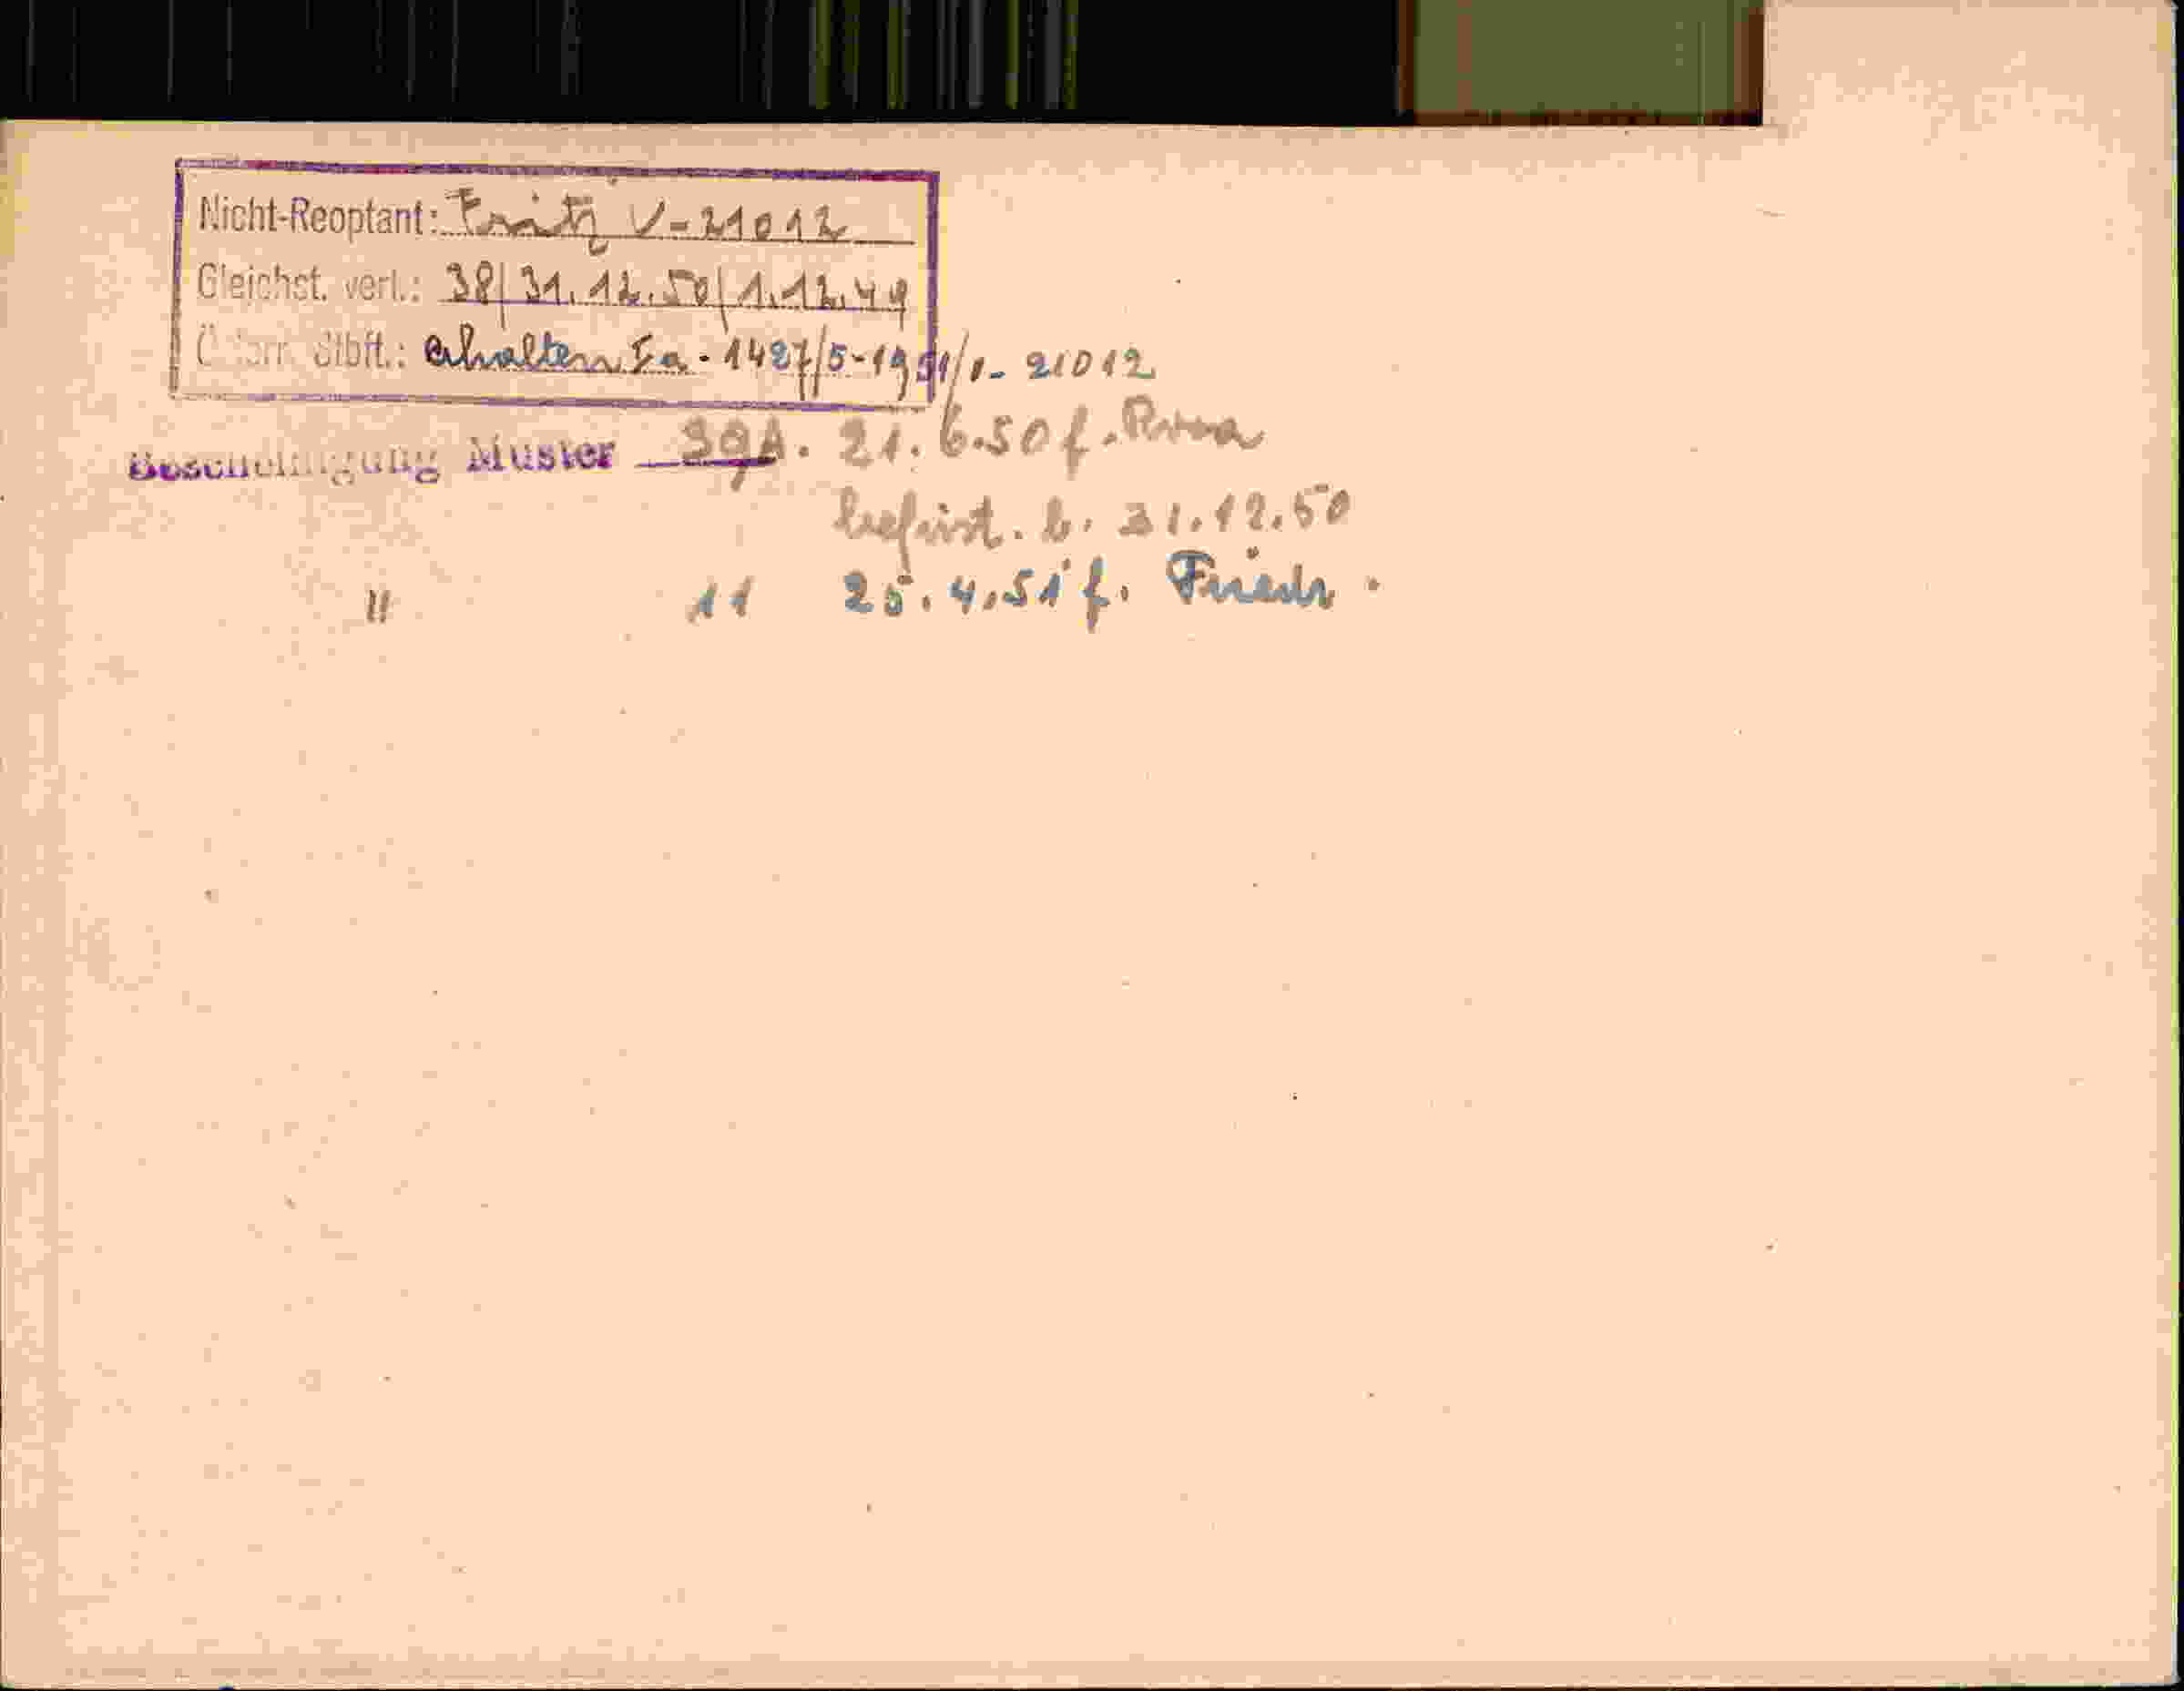 Nicht-Reoptant: Fritz V-21012
Gleichst. verl.: 38/31.12.50/1.12.49
Österr. Stbft.: erhalten Ia-1427/5-1951/V-21012
Bescheinigung Muster 39A. 21.6.50 f.
befrist. b. 31.12.50
" 11 25.4.51 f. Friedr.